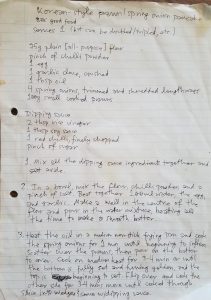 Korean-style prawn & spring onion pancake
BBC good food
serves 1 (but can be doubled/tripled, etc)
75g plain (all-purpose) flour
pinch of chilli powder
1 egg
1 garlic clove, crushed
1 tbsp oil
4 spring onions, trimmed and shredded lengthways
100g small cooked prawns
Dipping sauce
2 tbsp rice vinegar
1 tbsp soy sauce
1 red chilli, finely chopped
pinch of sugar
1. mix all the dipping sauce ingredients together and
set aside.
2. In a bowl, mix the flour, chilli powder and a
pinch of salt. Beat together water, the egg,
and garlic. Make a well in the centre of the
flour and pour in the water mixture, beating all
the time to make a smooth batter.
3. Heat the oil in a medium non-stick frying pan and cook
the spring onions for 1 min until beginning to soften.
Scatter over the prawns then pour in the batter
to cover. Cook on medium heat for 3-4 mins or until
the bottom is fully set and turning golden, and the
top is beginning to set. Flip over and cook the
other side for 3-4 mins more until cooked through.
Slice into wedges, serve with dipping sauce.